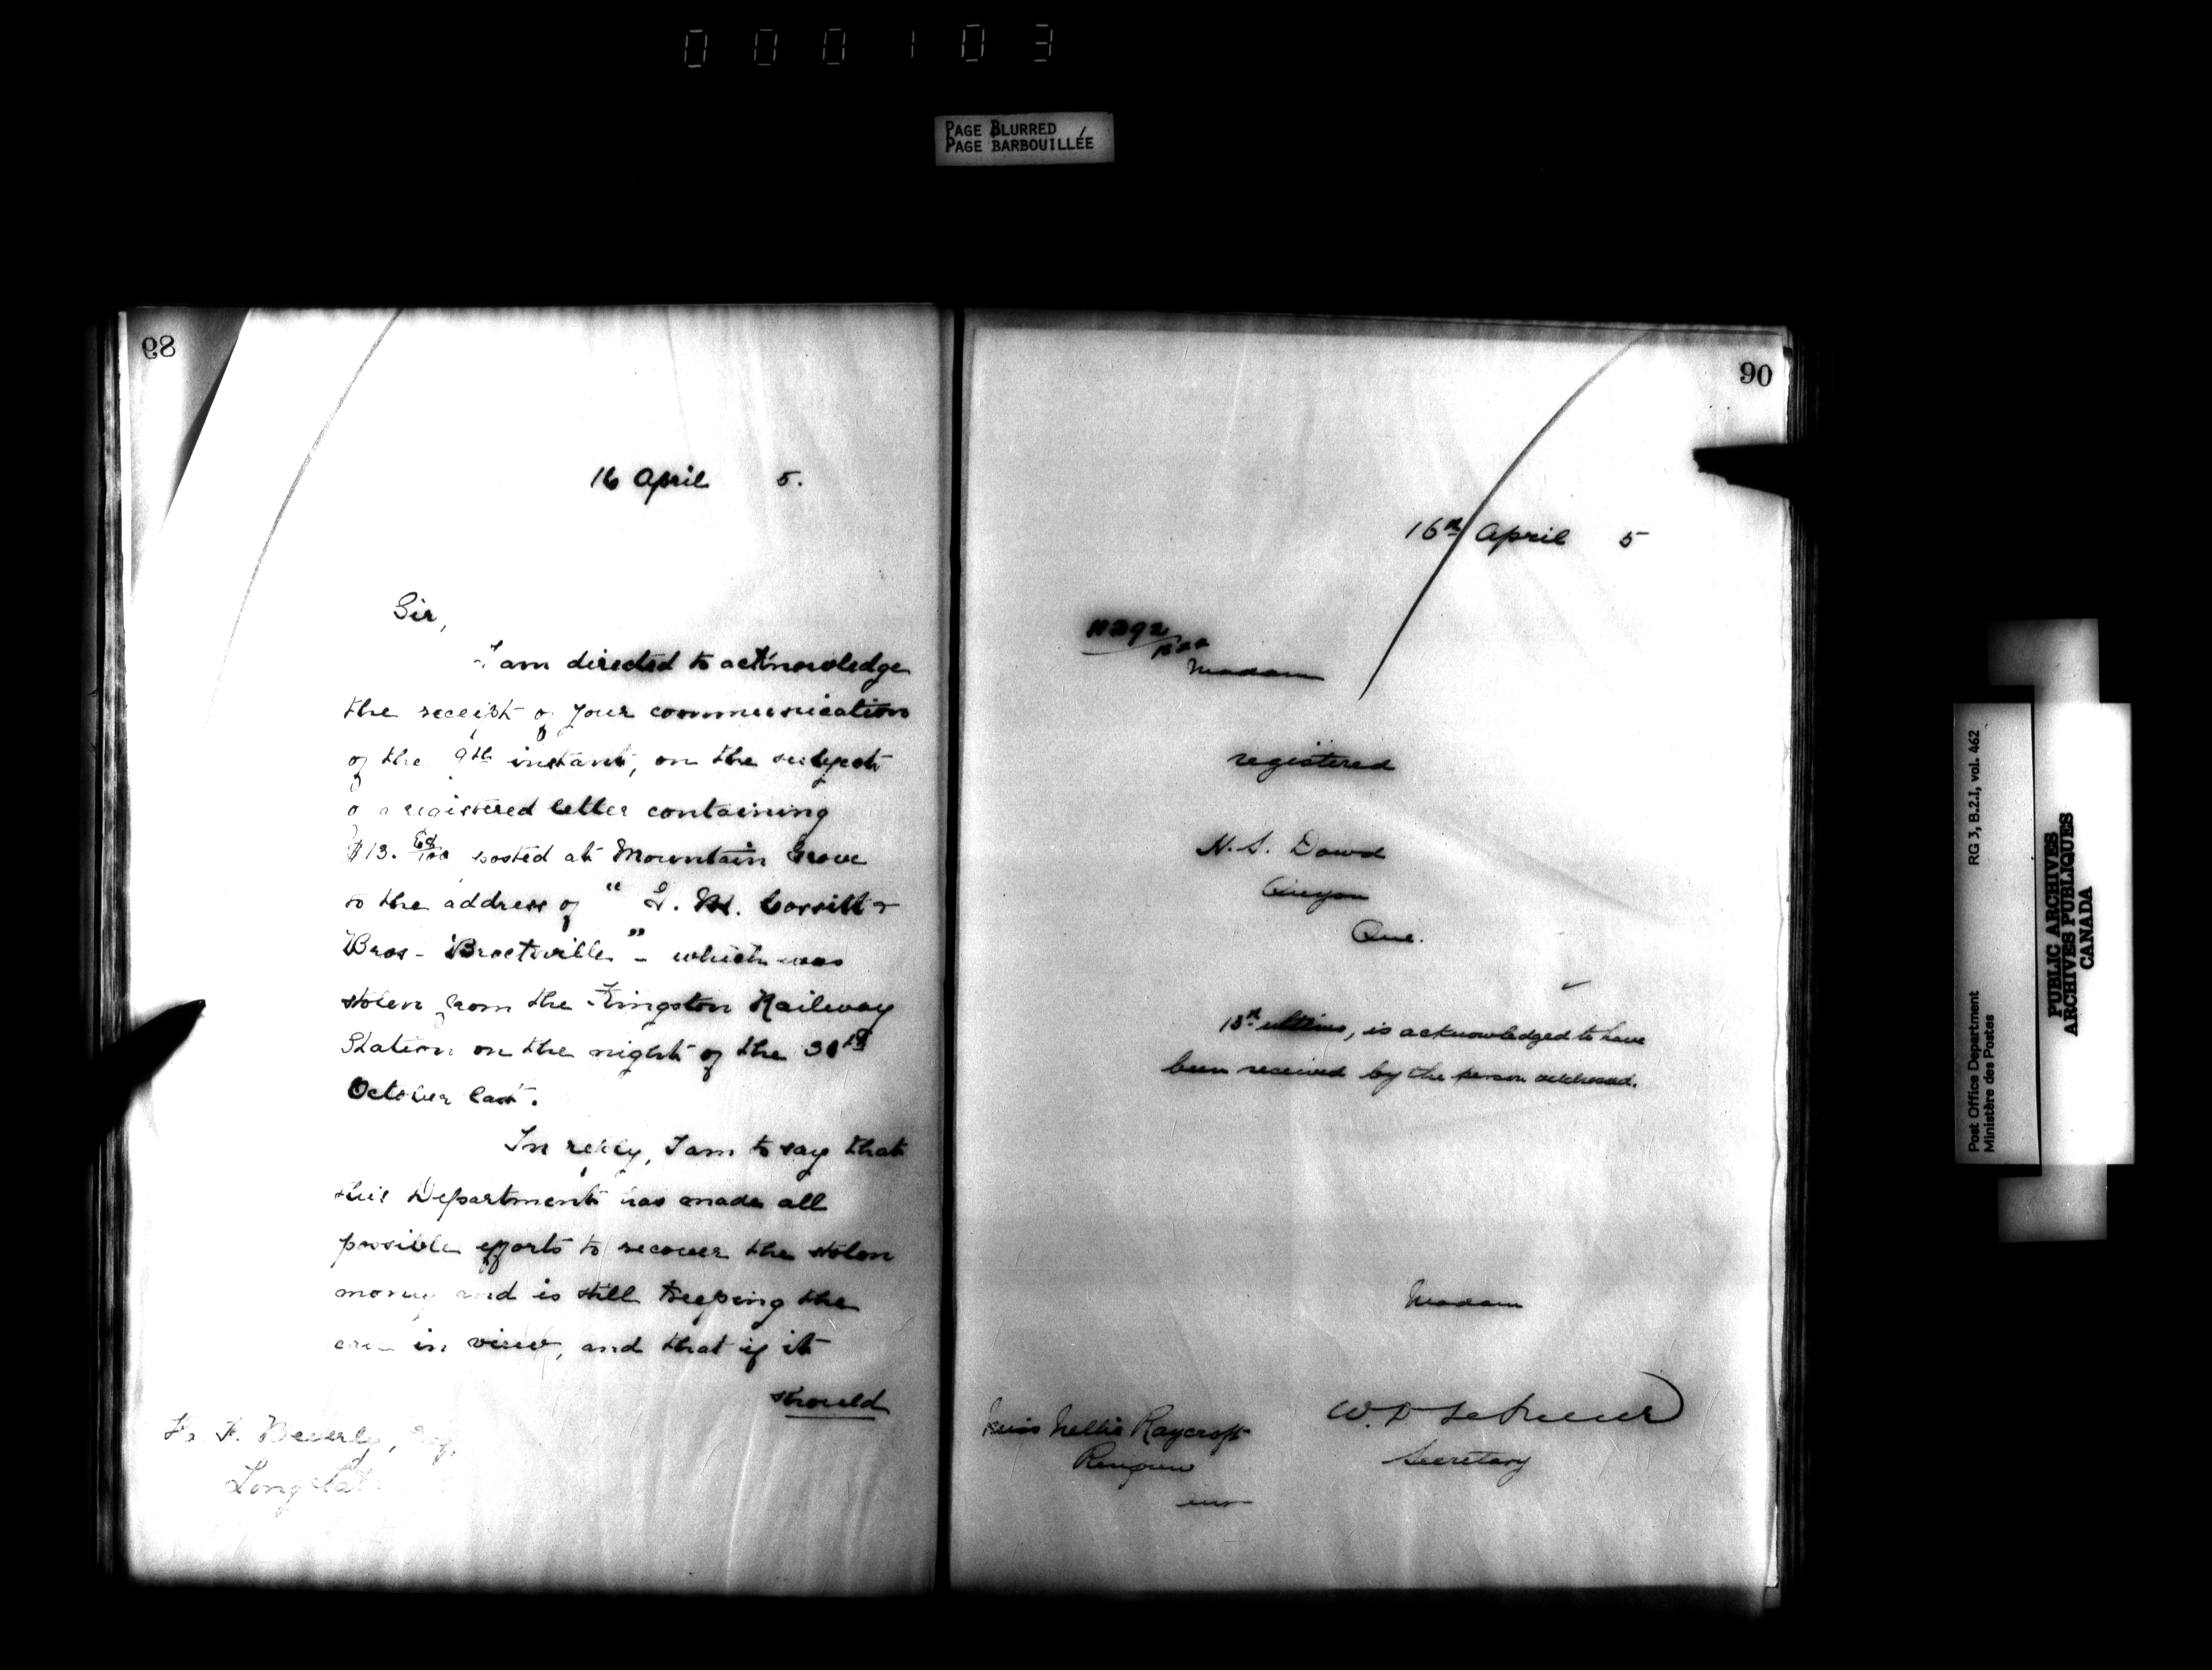 000103
PAGE BLURRED
PAGE BARBOUILLÉE
89
16 April 5.
Sir,
I am directed to acknowledge
the receipt of your communication
of the 9th instant, on the subject
of a registered letter containing
$13. 68/100 posted at Mountain Grove
to the address of "G. M. Cossitt &
Bros - Brockville" - which was
stolen from the Kingston Railway
Station on the night of the 30th
October last.
In reply, I am to say that
this Department has made all
possible efforts to recover the stolen
money and is still keeping the
case in view, and that if it
should
F. Beverly, Esq.
Long
90
16th April 5
Madam
registered
N. S. Dowd
Quyon
Que.
13th ultimo, is acknowledged to have
been received by the person addressed.
Madam
Miss Nellie Raycroft
Renfrew
W. D. LeSueur
Secretary
Post Office Department
Ministère des Postes
RG 3, B.2.I, vol. 462
PUBLIC ARCHIVES
ARCHIVES PUBLIQUES
CANADA